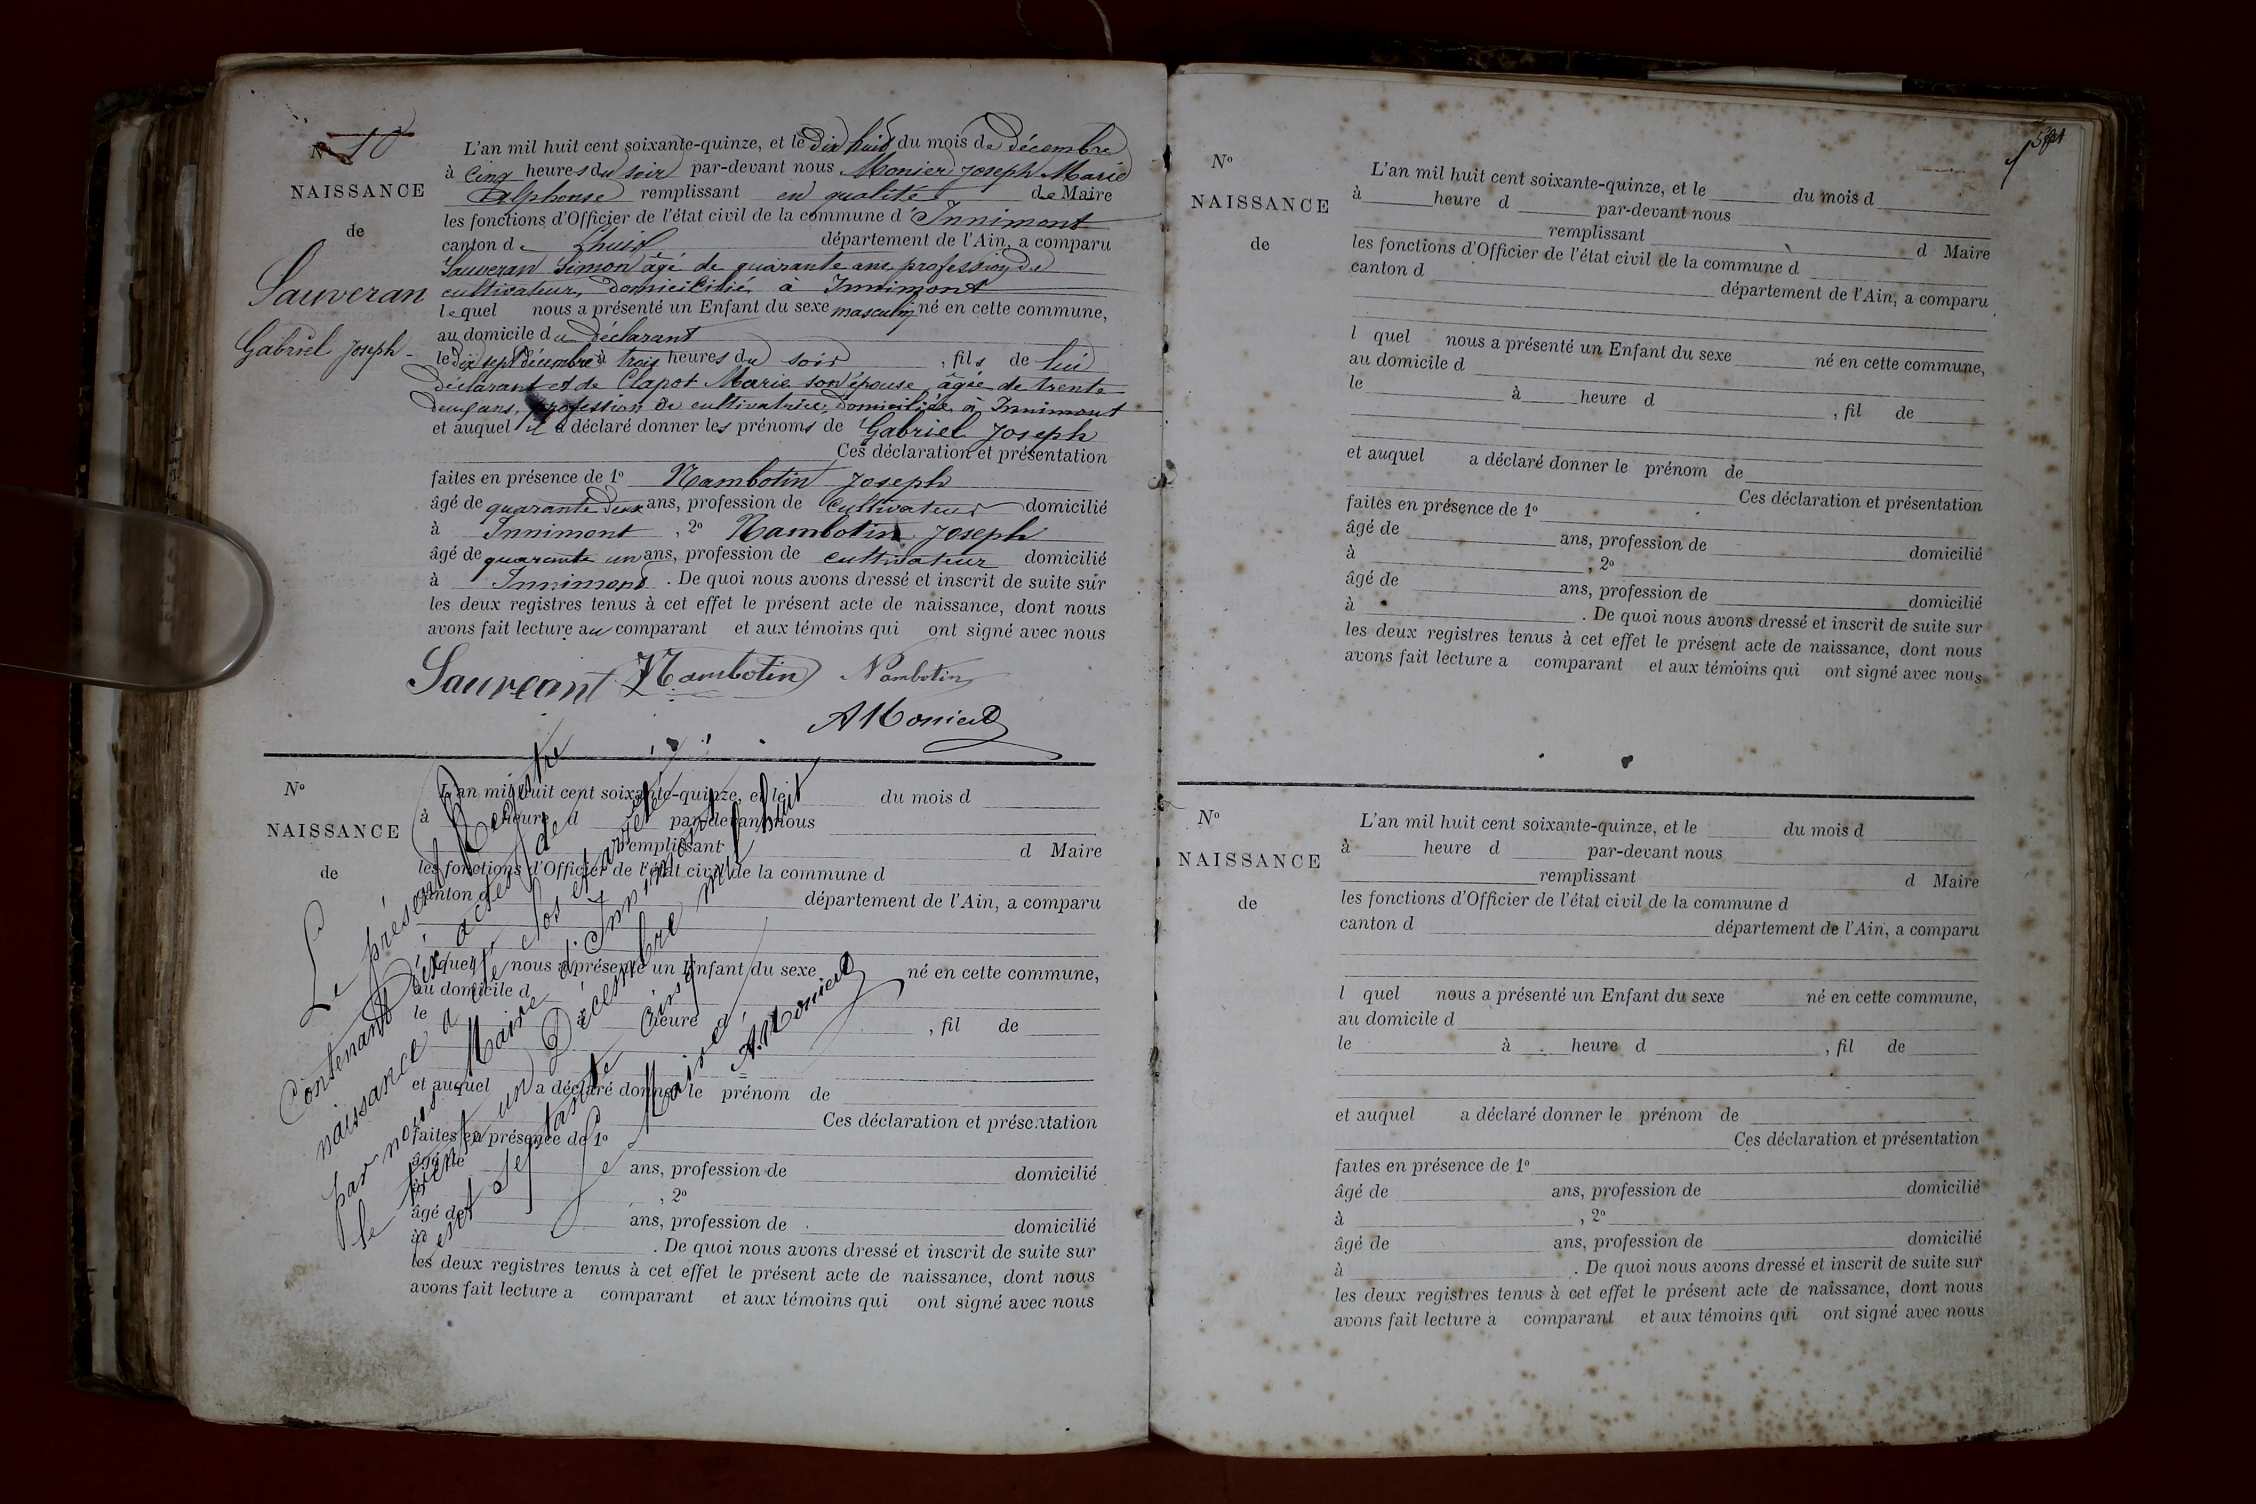 N° 10
NAISSANCE
de
Sauveran
Gabriel Joseph
L'an mil huit cent soixante-quinze, et le Dix huit du mois de décembre
à Cinq heures du soir par-devant nous Monier Joseph Marie
Alphonse remplissant en qualité de Maire
les fonctions d'Officier de l'état civil de la commune d'Innimont
canton de Lhuis département de l'Ain, a comparu
Sauveran Simon âgé de quarante ans profession de
cultivateur, domicilié à Innimont
lequel nous a présenté un Enfant du sexe masculin né en cette commune,
au domicile du Déclarant
le dix sept décembre à trois heures du soir, fils de lui
déclarant et de Clapot Marie son épouse, âgée de trente
deux ans, profession de cultivatrice, domiciliée à Innimont
et auquel il a déclaré donner les prénoms de Gabriel Joseph
Ces déclaration et présentation
faites en présence de 1° Nambotin Joseph
âgé de quarante deux ans, profession de Cultivateur domicilié
à Innimont, 2° Nambotin Joseph
âgé de quarante un ans, profession de cultivateur domicilié
à Innimont. De quoi nous avons dressé et inscrit de suite sur
les deux registres tenus à cet effet le présent acte de naissance, dont nous
avons fait lecture au comparant et aux témoins qui ont signé avec nous
Sauveant Nambotin Nambotin
A Monier
N°
NAISSANCE
de
L'an mil huit cent soixante-quinze, et le du mois d
à heure d par-devant nous
remplissant d Maire
les fonctions d'Officier de l'état civil de la commune d
canton d département de l'Ain, a comparu
l quel nous a présenté un Enfant du sexe né en cette commune,
au domicile d
le à heure , fil de
et auquel a déclaré donner le prénom de
Ces déclaration et présentation
faites en présence de 1°
âgé de ans, profession de domicilié
à , 2°
âgé de ans, profession de domicilié
à . De quoi nous avons dressé et inscrit de suite sur
les deux registres tenus à cet effet le présent acte de naissance, dont nous
avons fait lecture a comparant et aux témoins qui ont signé avec nous
Le présent Registre
Contenant Dix actes de
naissance a été clos et arrêté
par nous Maire d'Innimont
le trente un Décembre mil huit
cent septante cinq
Le Maire
A. Monier
N°
NAISSANCE
de
L'an mil huit cent soixante-quinze, et le du mois d
à heure d par-devant nous
remplissant d Maire
les fonctions d'Officier de l'état civil de la commune d
canton d département de l'Ain, a comparu
l quel nous a présenté un Enfant du sexe né en cette commune,
au domicile d
le à heure d , fil de
et auquel a déclaré donner le prénom de
Ces déclaration et présentation
faites en présence de 1°
âgé de ans, profession de domicilié
à , 2°
âgé de ans, profession de domicilié
à . De quoi nous avons dressé et inscrit de suite sur
les deux registres tenus à cet effet le présent acte de naissance, dont nous
avons fait lecture a comparant et aux témoins qui ont signé avec nous
N°
NAISSANCE
de
L'an mil huit cent soixante-quinze, et le du mois d
à heure d par-devant nous
remplissant d Maire
les fonctions d'Officier de l'état civil de la commune d
canton d département de l'Ain, a comparu
l quel nous a présenté un Enfant du sexe né en cette commune,
au domicile d
le à heure d , fil de
et auquel a déclaré donner le prénom de
Ces déclaration et présentation
faites en présence de 1°
âgé de ans, profession de domicilié
à , 2°
âgé de ans, profession de domicilié
à . De quoi nous avons dressé et inscrit de suite sur
les deux registres tenus à cet effet le présent acte de naissance, dont nous
avons fait lecture a comparant et aux témoins qui ont signé avec nous